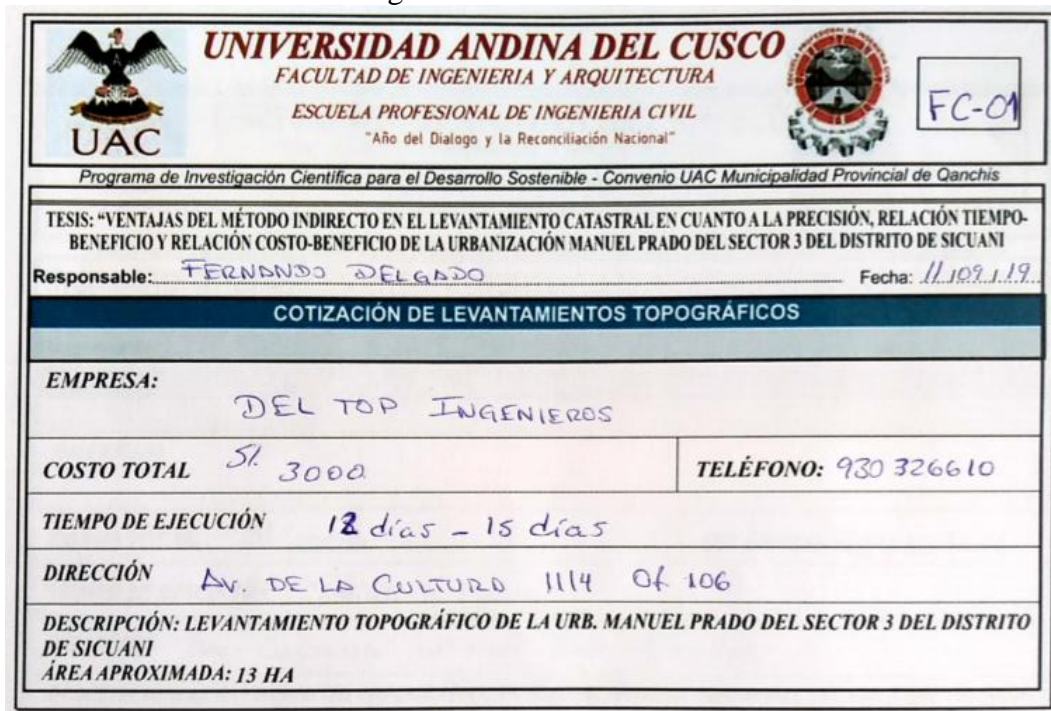 UNIVERSIDAD ANDINA DEL CUSCO
FACULTAD DE INGENIERIA Y ARQUITECTURA
ESCUELA PROFESIONAL DE INGENIERIA CIVIL
"Año del Dialogo y la Reconciliación Nacional"
UAC
FC-01
Programa de Investigación Científica para el Desarrollo Sostenible - Convenio UAC Municipalidad Provincial de Qanchis
TESIS: "VENTAJAS DEL MÉTODO INDIRECTO EN EL LEVANTAMIENTO CATASTRAL EN CUANTO A LA PRECISIÓN, RELACIÓN TIEMPO-
BENEFICIO Y RELACIÓN COSTO-BENEFICIO DE LA URBANIZACIÓN MANUEL PRADO DEL SECTOR 3 DEL DISTRITO DE SICUANI
Responsable: FERNANDO DELGADO Fecha: 11/09/19
COTIZACIÓN DE LEVANTAMIENTOS TOPOGRÁFICOS
EMPRESA:
DEL TOP INGENIEROS
COSTO TOTAL S/. 3000 TELÉFONO: 930 326610
TIEMPO DE EJECUCIÓN 12 días - 15 días
DIRECCIÓN AV. DE LA CULTURA 1114 Of 106
DESCRIPCIÓN: LEVANTAMIENTO TOPOGRÁFICO DE LA URB. MANUEL PRADO DEL SECTOR 3 DEL DISTRITO
DE SICUANI
ÁREA APROXIMADA: 13 HA